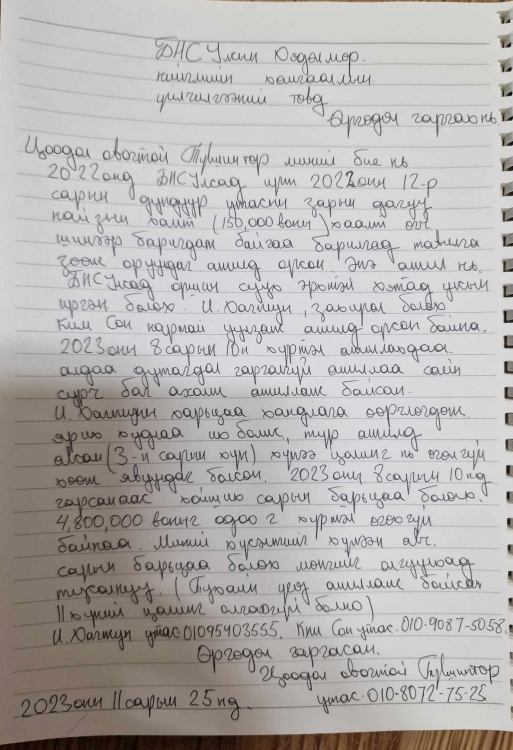 БНС Улсын Хөдөлмөр.
нийгмийн хамгааллын
үйлчилгээний төвд
Өргөдөл гаргах нь
Цоодол овогтой Түвшинтөр миний бие нь
2022 онд БНС Улсад ирж 2022 оны 12-р
сарын дундуур утасны зарын дагуу
найзын хамт (150,000 воны) хаалт өгч
шинээр баригдаж байгаа барилгад тавилга
зөөж оруулдаг ажилд орсон. Энэ ажил нь.
БНС Улсад оршин суух эрхтэй Хятад улсын
иргэн болох И. Хагшун, захирал болох
Ким Сон нартай уулзаж ажилд орсон байна.
2023 оны 8 сарын 10н хүртэл ажиллахдаа.
алдаа дутагдал гаргалгүй ажиллаа сайн
сурч баг ахлан ажиллаж байсан.
И. Хагшуны харьцаа хандлага өөрчлөгдөж.
ярих худлаа их болж, түр ажилд
авсан (3-н сарын хүн) хүнээ цалинг нь өгөлгүй
хөөж явуулдаг болсон. 2023 оны 8 сарын 10нд
гарсанаас хойших сарын барьцаа болох.
4,800,000 воныг одоо г хүртэл өгөхгүй
байгаа. Миний хүсэлтийг хүлээн авч.
сарын барьцаа болох мөнгийг олгуулахад
тусалнуу. (Тухайн үед ажиллаж байсан
11 хүний цалинг олгоогүй болно)
И. Хагшун утас 01095403555. Ким Сон утас. 010-9087-5058.
Өргөдөл гаргасан.
Цоодол овогтой Түвшинтөр
2023 оны 11 сарын 25 нд. утас. 010-8072-75-25